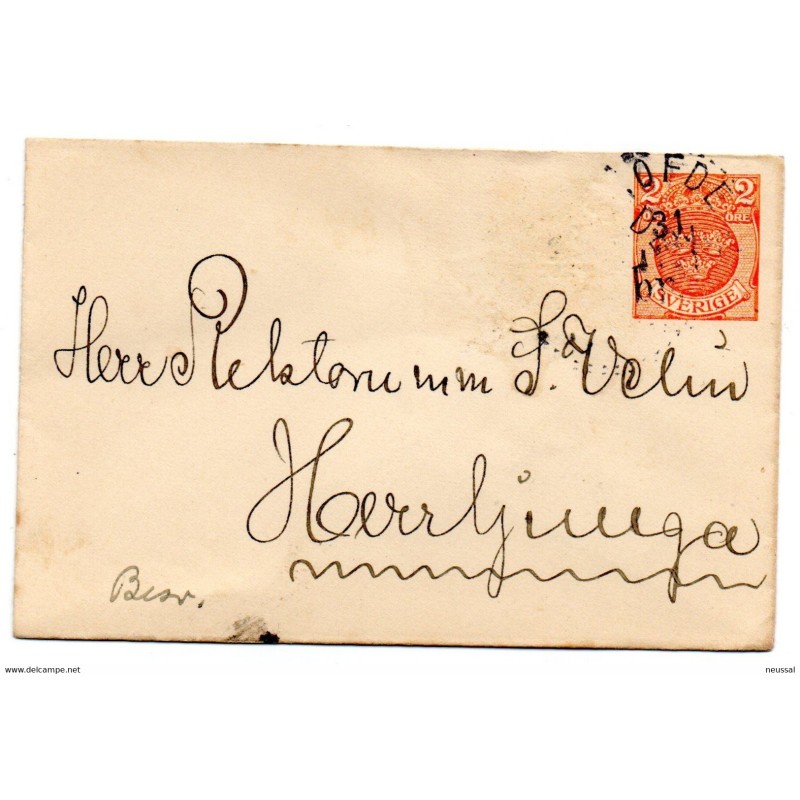 2 2
ÖRE
31
SVERIGE
Herr Rektor m m S. Velin
Herrljunga
Besv.
www.delcampe.net
neussal